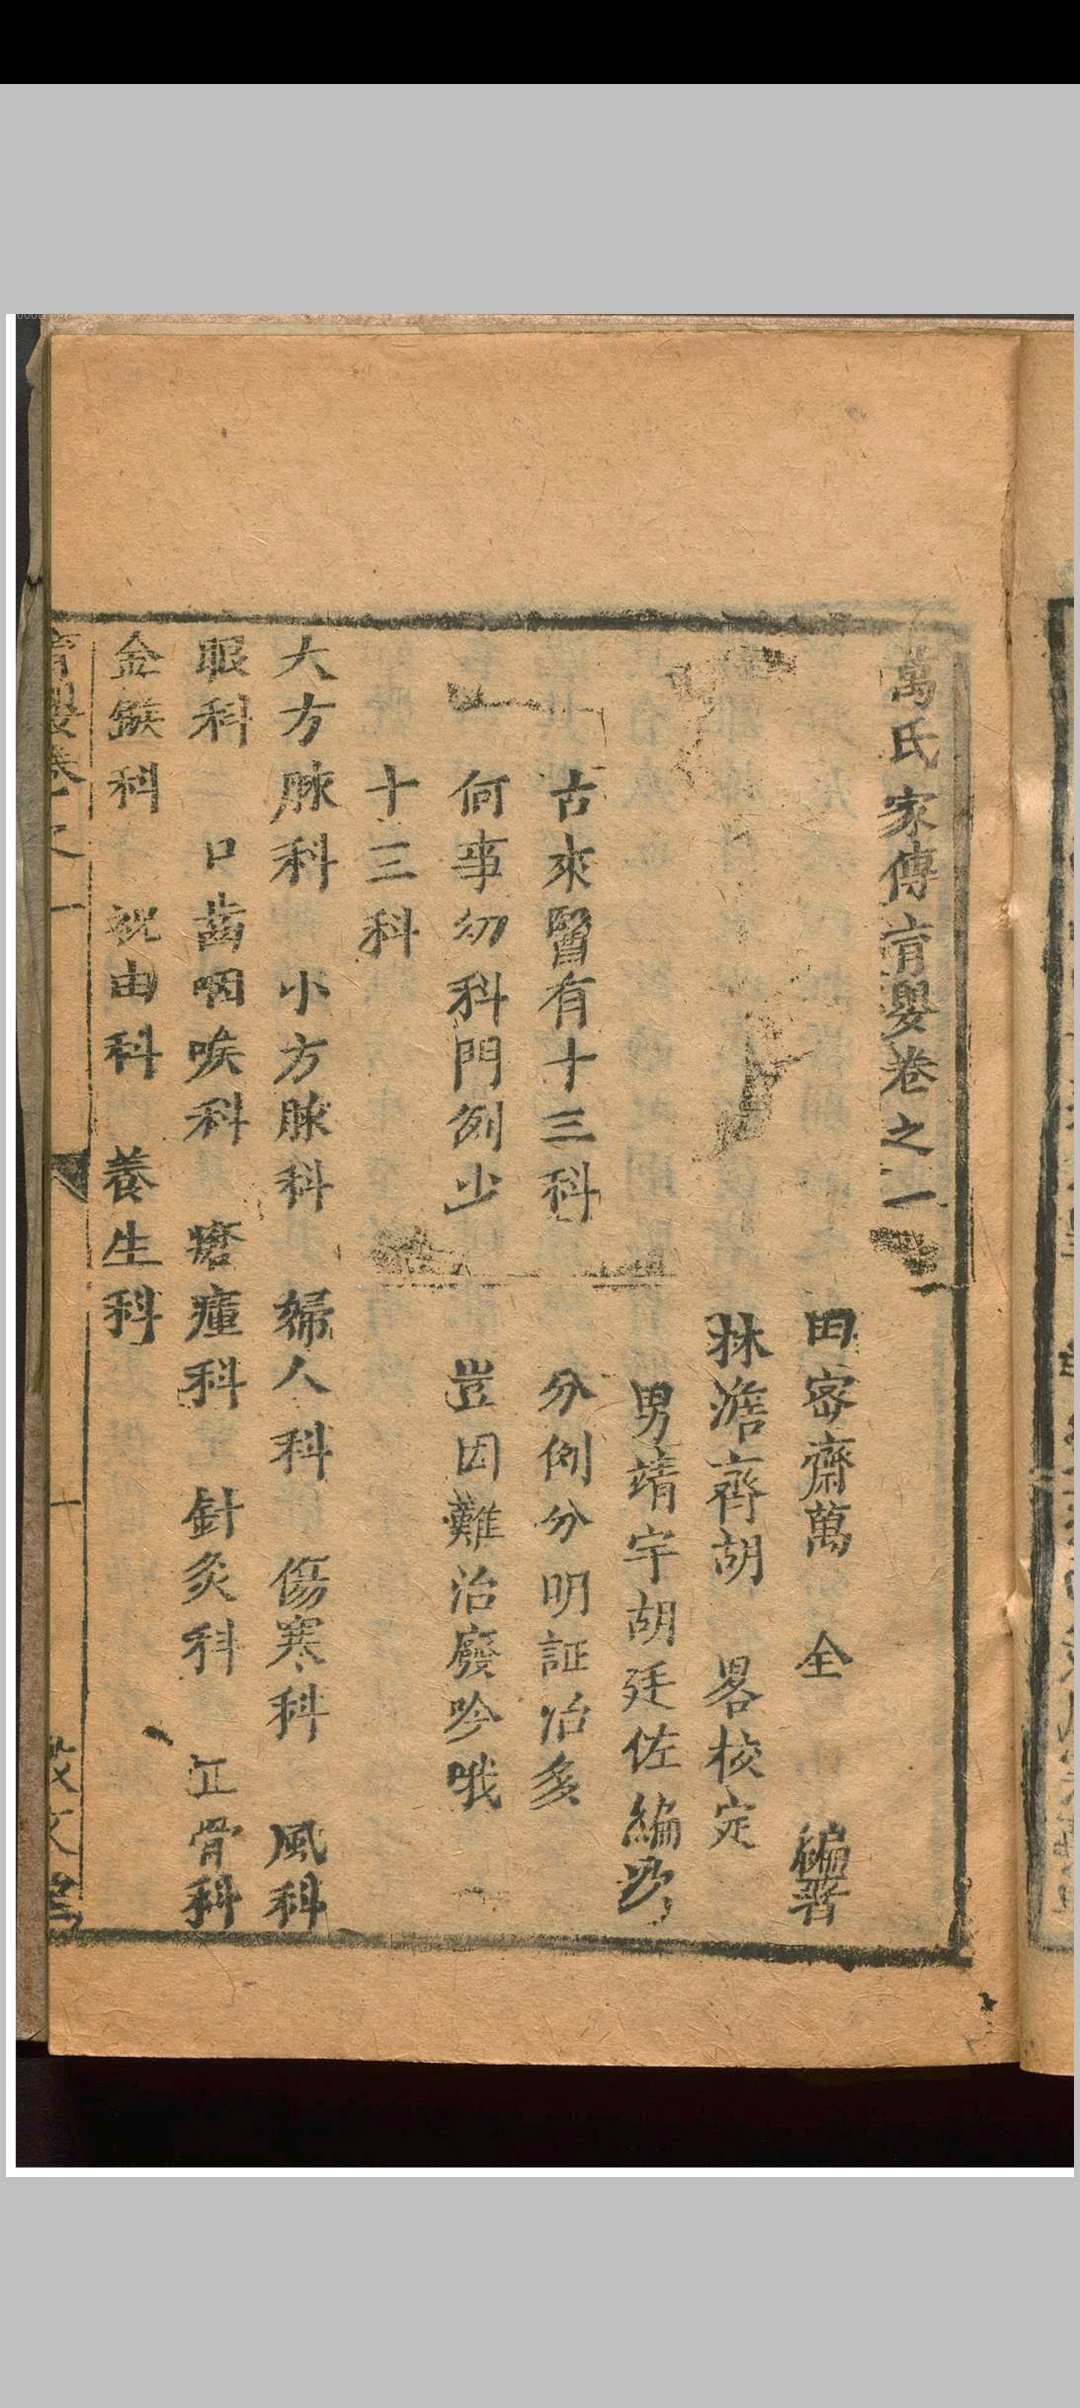 萬氏家傳育嬰卷之一
田宻齋萬　全　編著
林澹齊胡　畧校定
男靖宇胡廷佐編抄
古來醫有十三科　分例分明証治多
何事幼科門例少　豈因難治廢吟哦
十三科
大方脉科　小方脉科　婦人科　傷寒科　風科
眼科　口齒咽喉科　瘡瘇科　針灸科　正骨科
金鏃科　祝由科　養生科
育嬰卷之一